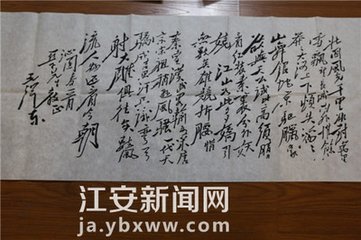 北国风光千里冰封万里
雪飘望长城内外惟余
莽莽大河上下顿失滔滔
山舞银蛇原驰腊象
欲与天公试比高须晴
日看红装素裹分外妖
娆江山如此多娇引
无数英雄竞折腰惜
秦皇汉武略输文采唐
宗宋祖稍逊风骚一代天
骄成吉思汗只识弯弓
射大雕俱往矣数风
流人物还看今朝
沁园春一首
教正
毛泽东
江安新闻网
ja.ybxww.com